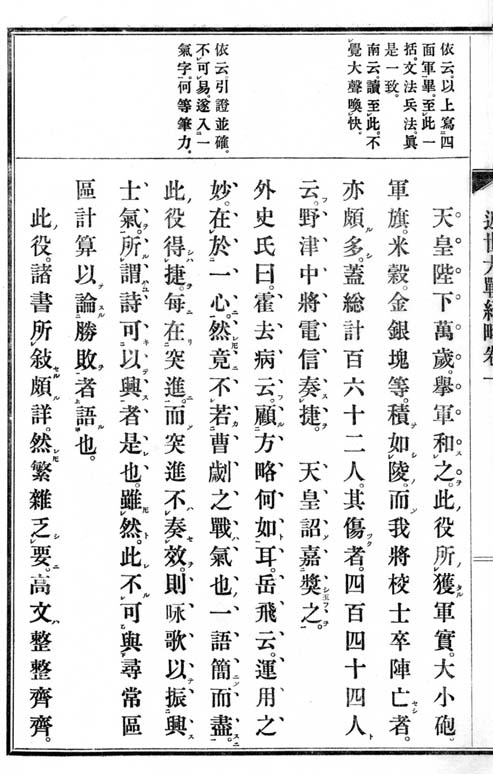 近世大戰紀略卷一
依云。以上寫四
面軍畢。至此一
括。文法兵法。眞
是一致。
南云。讀至此。不
覺大聲喚快。
依云。引證並確。
不可易。遂入一
氣字。何等筆力。
天皇陛下萬歲。擧軍和之。此役所獲軍實。大小砲。
軍旗。米穀。金銀塊等。積如陵。而我將挍士卒陣亡者。
亦頗多。蓋總計百六十二人。其傷者。四百四十四人
云。野津中將電信奏捷。　天皇詔嘉奬之。
外史氏曰。霍去病云。顧方略何如耳。岳飛云。運用之
妙。在於一心。然竟不若曹劌之戰氣也一語簡而盡。
此役得捷。每在突進。而突進不奏效。則咏歌以振興
士氣。所謂詩可以興者是也。雖然。此不可與尋常區
區計算以論勝敗者語也。
此役。諸書所敍頗詳。然繁雜乏要。高文整整齊齊。